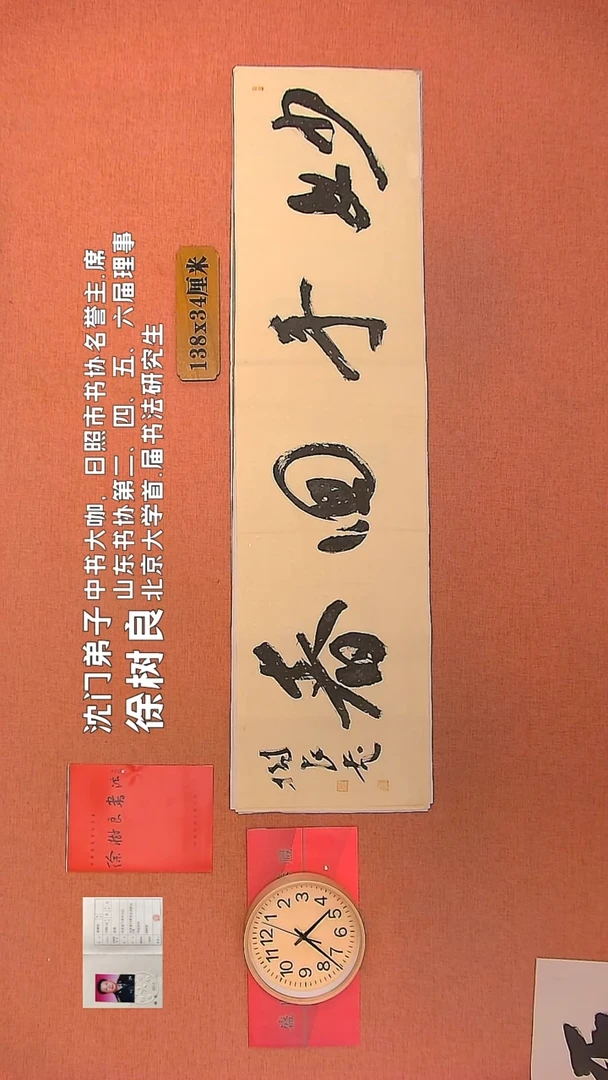 沈门弟子 中书大咖、日照市书协名誉主.席
山东书协第二、四、五、六届理事
徐树良 北京大学首.届书法研究生
138x34厘米
妙手回春
树良书
徐树良书法
12 1 2 3 4 5 6 7 8 9 10 11